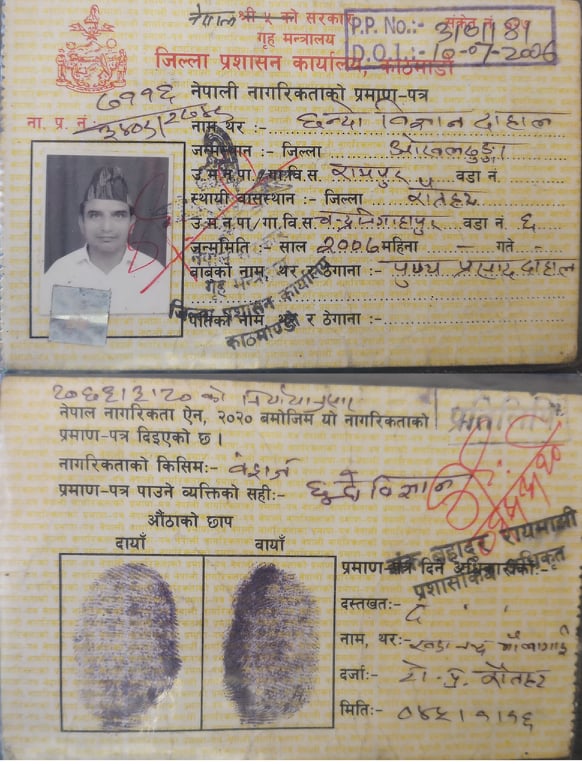 नेपाल श्री ५ को सरकार
गृह मन्त्रालय
P.P. No.:-
D.O.I.:- 10-07-2006
जिल्ला प्रशासन कार्यालय, काठमाडौं
नेपाली नागरिकताको प्रमाण-पत्र
ना. प्र. नं.
नाम थर :- छन्दो विज्ञान दाहाल
जन्मस्थान :- जिल्ला ओखलढुङ्गा
उ.म.न.पा./गा.वि.स. रामपुर वडा नं.
स्थायी बासस्थान :- जिल्ला रौतहट
उ.म.न.पा/गा.वि.स. चन्द्रनिगाहपुर वडा नं. ६
जन्ममिति :- साल २००७ महिना - गते -
बाबुको नाम, थर र ठेगाना :- पुण्य प्रसाद दाहाल
पतिको नाम, थर र ठेगाना :-
गृह मन्त्रालय
जिल्ला प्रशासन कार्यालय
काठमाण्डौ
२०६३।३।२० को निर्णयानुसार
नेपाल नागरिकता ऐन, २०२० बमोजिम यो नागरिकताको
प्रमाण-पत्र दिइएको छ।
प्रतिलिपि
नागरिकताको किसिम:- वंशज
प्रमाण-पत्र पाउने व्यक्तिको सही:-
औंठाको छाप
दायाँ बायाँ
बहादुर रायमाझी
प्रशासकिय अधिकृत
प्रमाण-पत्र दिने अधिकारीको:-
दस्तखत:-
नाम, थर:-
दर्जा:- रौतहट
मिति:-